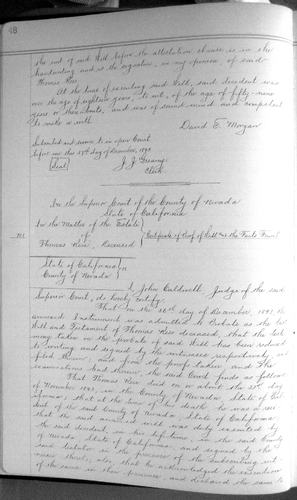 48
the end of said Will before the attestation clause is in the
handwriting and is the signature, in my opinion, of said
Thomas Rew
At the time of executing said Will, said decedent was
over the age of eighteen years, to wit, of the age of fifty-nine
years or thereabouts, and was of sound mind and competent
to make a will.
David E. Morgan
Subscribed and sworn to in open Court
before me this 28th day of December, 1893.
Seal
J. J. Greany
Clerk
In the Superior Court of the County of Nevada
State of California
In the Matter of the Estate
of
Thomas Rew, Deceased
Certificate of Proof of Will and the Facts Found
State of California
County of Nevada
I, John Caldwell, Judge of the said
Superior Court, do hereby Certify:
That on the 28th day of December, 1893, the
annexed Instrument was admitted to Probate as the last
Will and Testament of Thomas Rew deceased, that the testi-
mony taken in the probate of said Will has been reduced
to writing and signed by the witnesses respectively, and
filed herein; and from the proofs taken and the
examinations had therein, the said Court finds as follows:
That Thomas Rew died on or about the
of November 1893, in the County of Nevada, State of Cal-
ifornia; that at the time of his death he was a resi-
dent of the said County of Nevada State of California
that the said annexed will was duly executed by
the said decedent, in his lifetime, in the said County
of Nevada State of California, and signed by the
said testator in the presence of the subscribing wit-
nesses thereto; also that he acknowledged the execution
of the same in their presence, and declared the same to